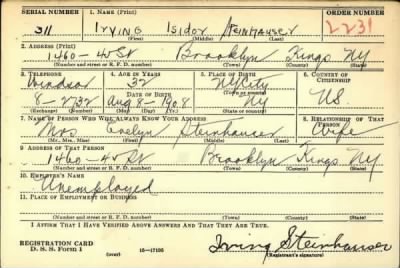 SERIAL NUMBER 1. NAME (Print) ORDER NUMBER
311 Irving Isidor Steinhauser 2231
(First) (Middle) (Last)
2. ADDRESS (Print)
1460-40 St Brooklyn Kings NY
(Number and street or R. F. D. number) (Town) (County) (State)
3. TELEPHONE 4. AGE IN YEARS 5. PLACE OF BIRTH 6. COUNTRY OF CITIZENSHIP
Windsor 32 NY City
DATE OF BIRTH (Town or county)
8-2732 Aug 8-1908 NY US.
(Exchange) (Number) (Mo.) (Day) (Yr.) (State or country)
7. NAME OF PERSON WHO WILL ALWAYS KNOW YOUR ADDRESS 8. RELATIONSHIP OF THAT PERSON
Mrs Evelyn Steinhauser Wife
(Mr., Mrs., Miss) (First) (Middle) (Last)
9. ADDRESS OF THAT PERSON
1460-40 St Brooklyn Kings NY
(Number and street or R. F. D. number) (Town) (County) (State)
10. EMPLOYER'S NAME
Unemployed
11. PLACE OF EMPLOYMENT OR BUSINESS
(Number and street or R. F. D. number) (Town) (County) (State)
I AFFIRM THAT I HAVE VERIFIED ABOVE ANSWERS AND THAT THEY ARE TRUE.
REGISTRATION CARD
D. S. S. Form 1 (over) 16-17105 Irving Steinhauser
(Registrant's signature)